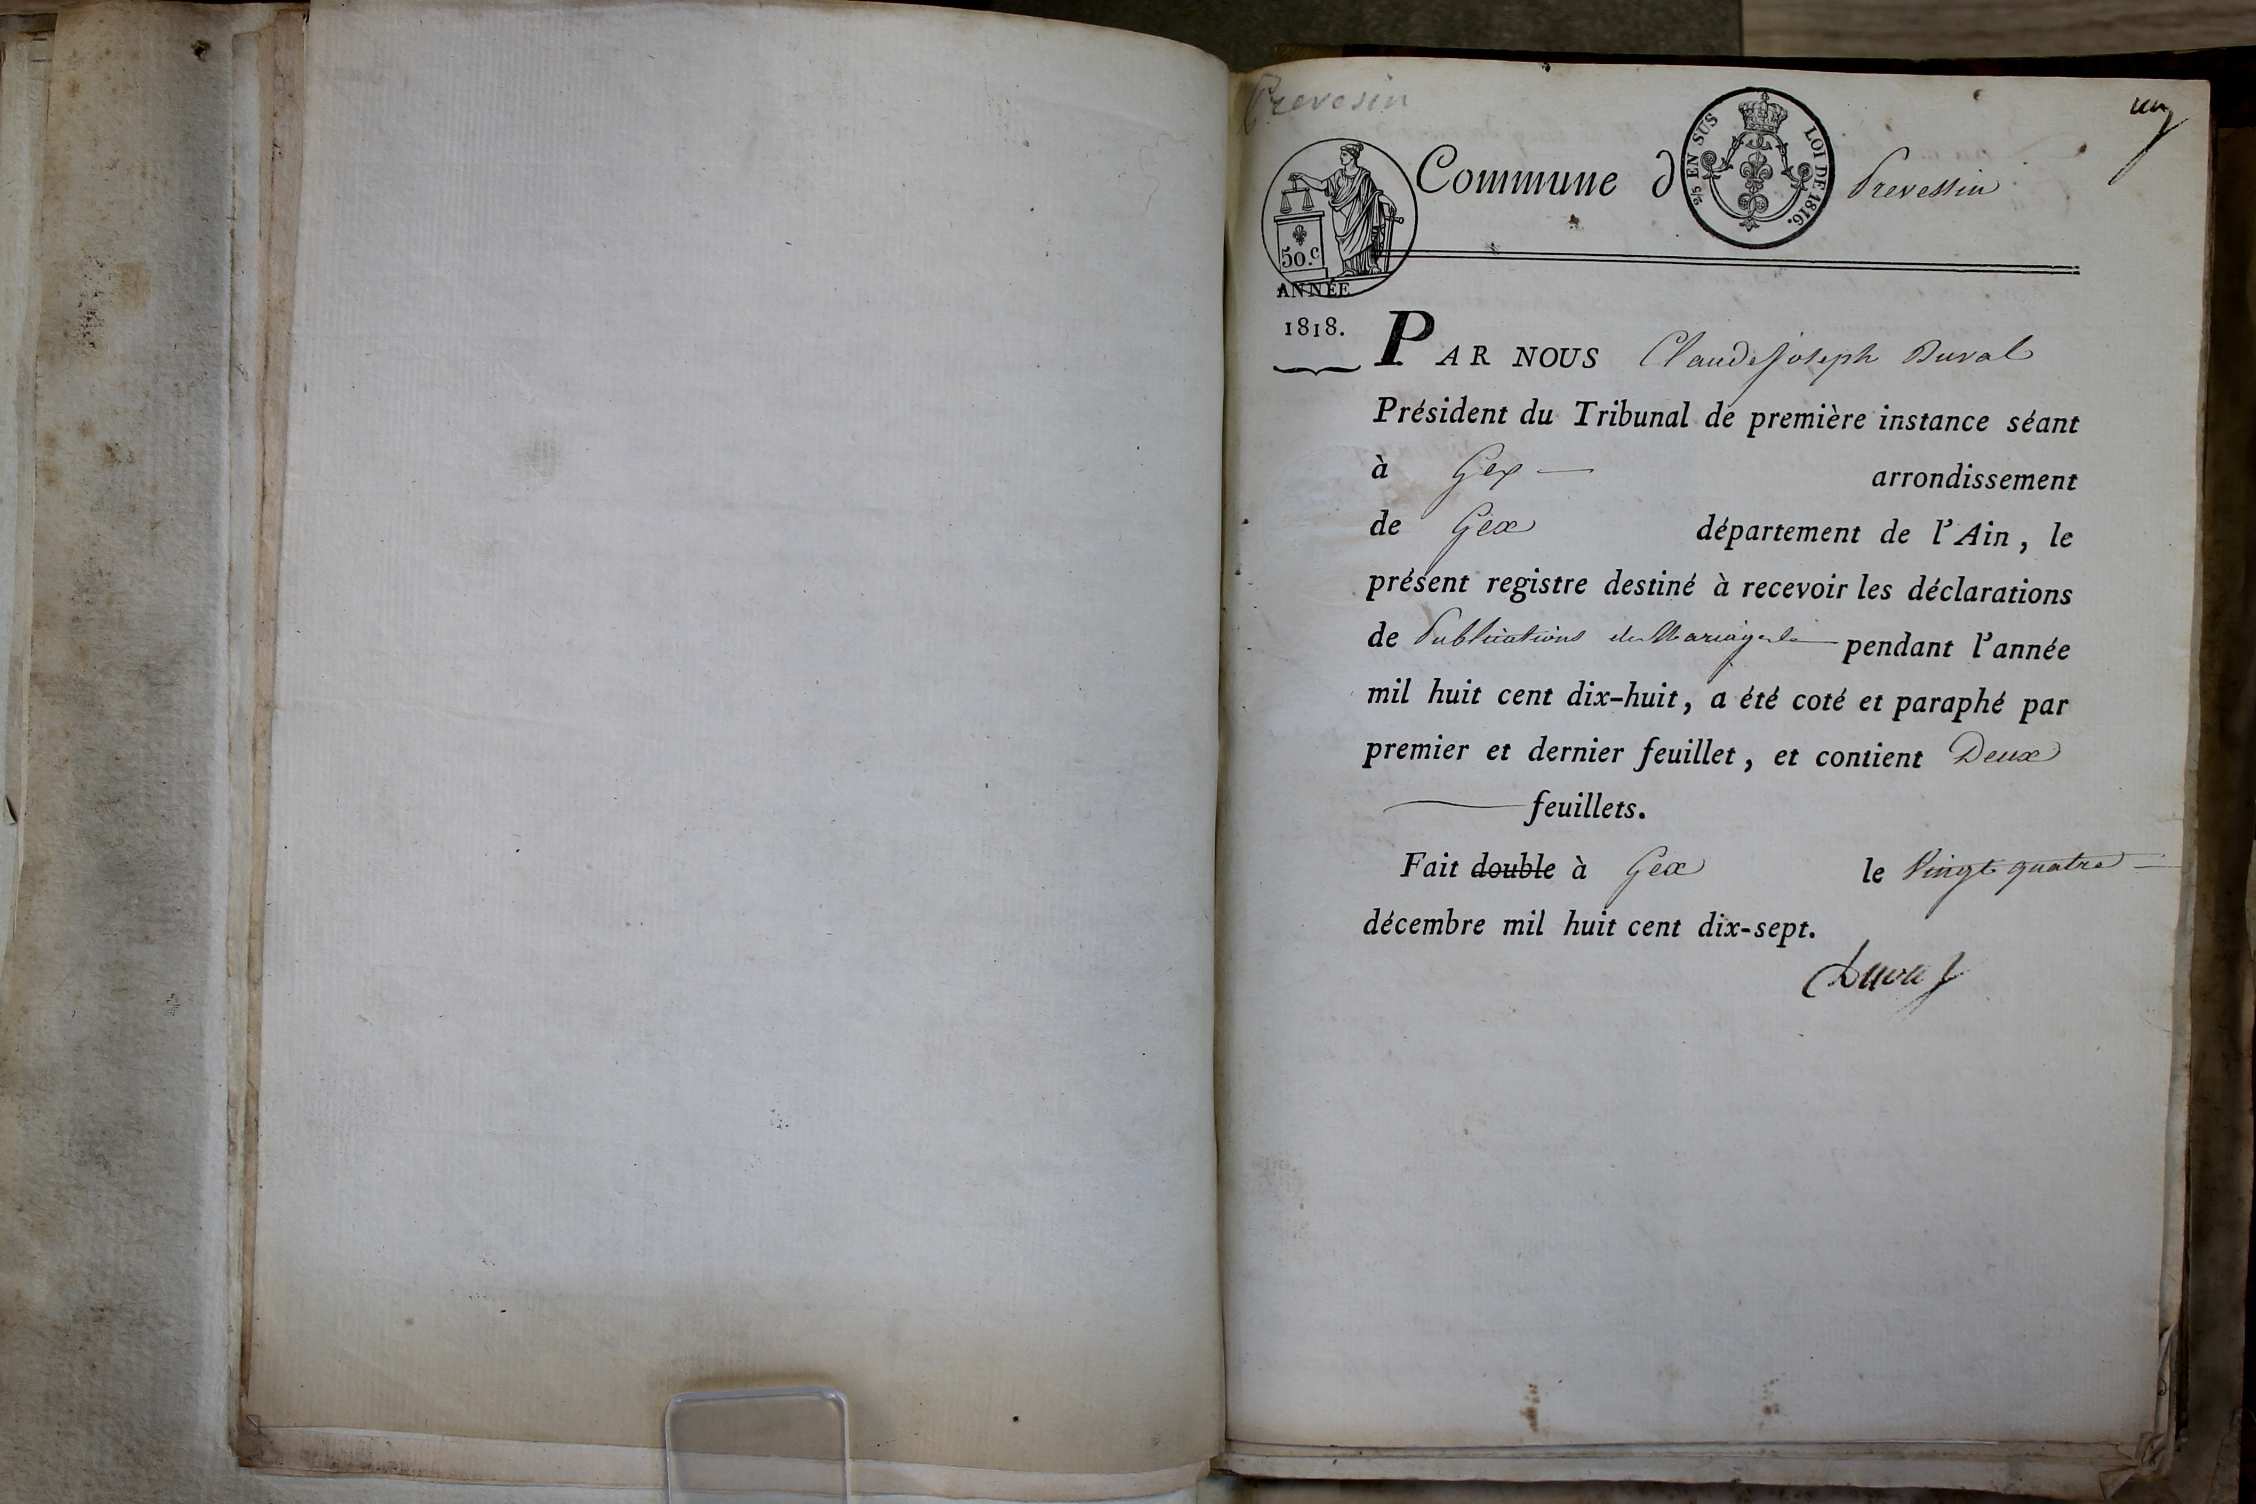 Prevesin
un
2/5 EN SUS LOI DE 1816.
Commune d Prevessin
50.c
ANNÉE
1818.
PAR NOUS Claude Joseph Duval
Président du Tribunal de première instance séant
à Gex arrondissement
de Gex département de l'Ain, le
présent registre destiné à recevoir les déclarations
de Publications de Mariages pendant l'année
mil huit cent dix-huit, a été coté et paraphé par
premier et dernier feuillet, et contient Deux
feuillets.
Fait double à Gex le Vingt quatre
décembre mil huit cent dix-sept.
Duval